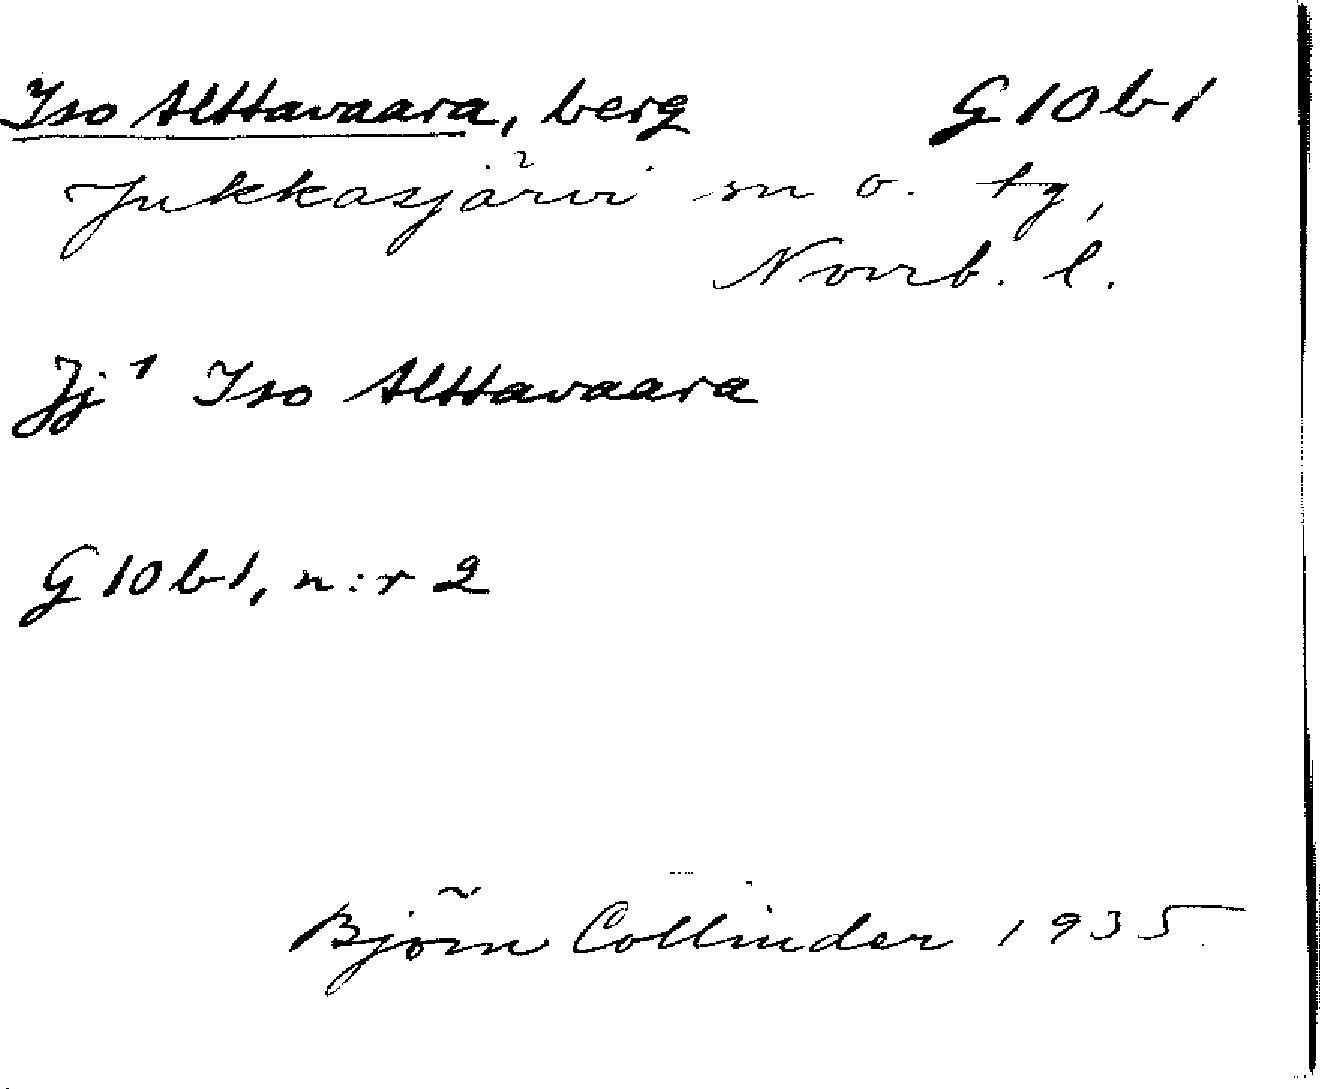 Iso Alttavaara, berg G 10 b 1
Jukkasjärvi sn o. tg,
Norrb. l.
Jj 1 Iso Alttavaara
G 10 b 1, n:r 2
Björn Collinder 1935